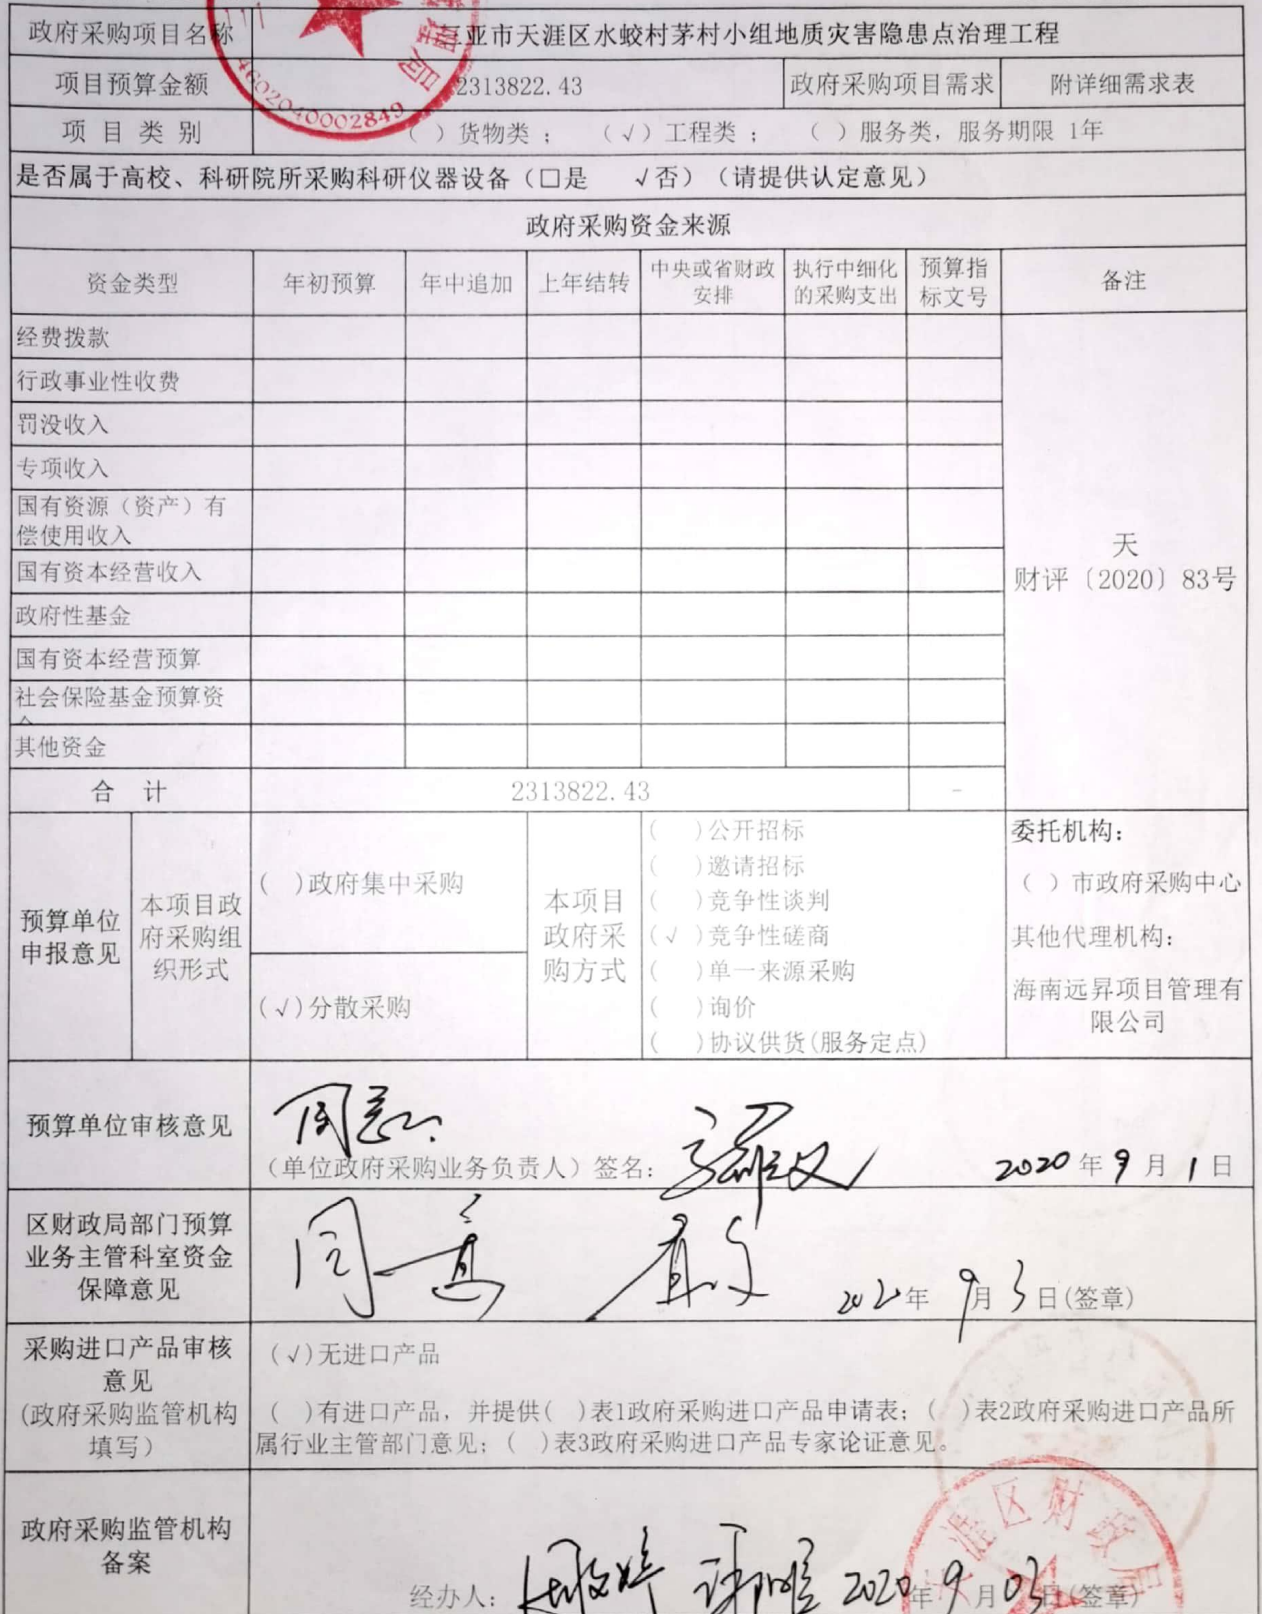 政府采购项目名称 三亚市天涯区水蛟村茅村小组地质灾害隐患点治理工程
项目预算金额 2313822.43 政府采购项目需求 附详细需求表
4602040002849
项 目 类 别 （ ）货物类； （√）工程类； （ ）服务类，服务期限 1年
是否属于高校、科研院所采购科研仪器设备（□是 √否）（请提供认定意见）
政府采购资金来源
资金类型 年初预算 年中追加 上年结转 中央或省财政安排 执行中细化的采购支出 预算指标文号 备注
经费拨款
行政事业性收费
罚没收入
专项收入
国有资源（资产）有
偿使用收入
天
财评〔2020〕83号
国有资本经营收入
政府性基金
国有资本经营预算
社会保险基金预算资
其他资金
合 计 2313822.43 -
预算单位
申报意见
本项目政
府采购组
织形式
( )政府集中采购
(√)分散采购
本项目
政府采
购方式
( )公开招标
( )邀请招标
( )竞争性谈判
(√ )竞争性磋商
( )单一来源采购
( )询价
( )协议供货(服务定点)
委托机构：
（ ）市政府采购中心
其他代理机构：
海南远昇项目管理有
限公司
预算单位审核意见
同意
（单位政府采购业务负责人）签名： 2020年9月1日
区财政局部门预算
业务主管科室资金
保障意见
同意
2020年9月3日(签章)
采购进口产品审核
意见
(政府采购监管机构
填写）
(√)无进口产品
( )有进口产品，并提供( )表1政府采购进口产品申请表；( )表2政府采购进口产品所
属行业主管部门意见；( )表3政府采购进口产品专家论证意见。
政府采购监管机构
备案
经办人： 2020年9月03日(签章)
天涯区财政局